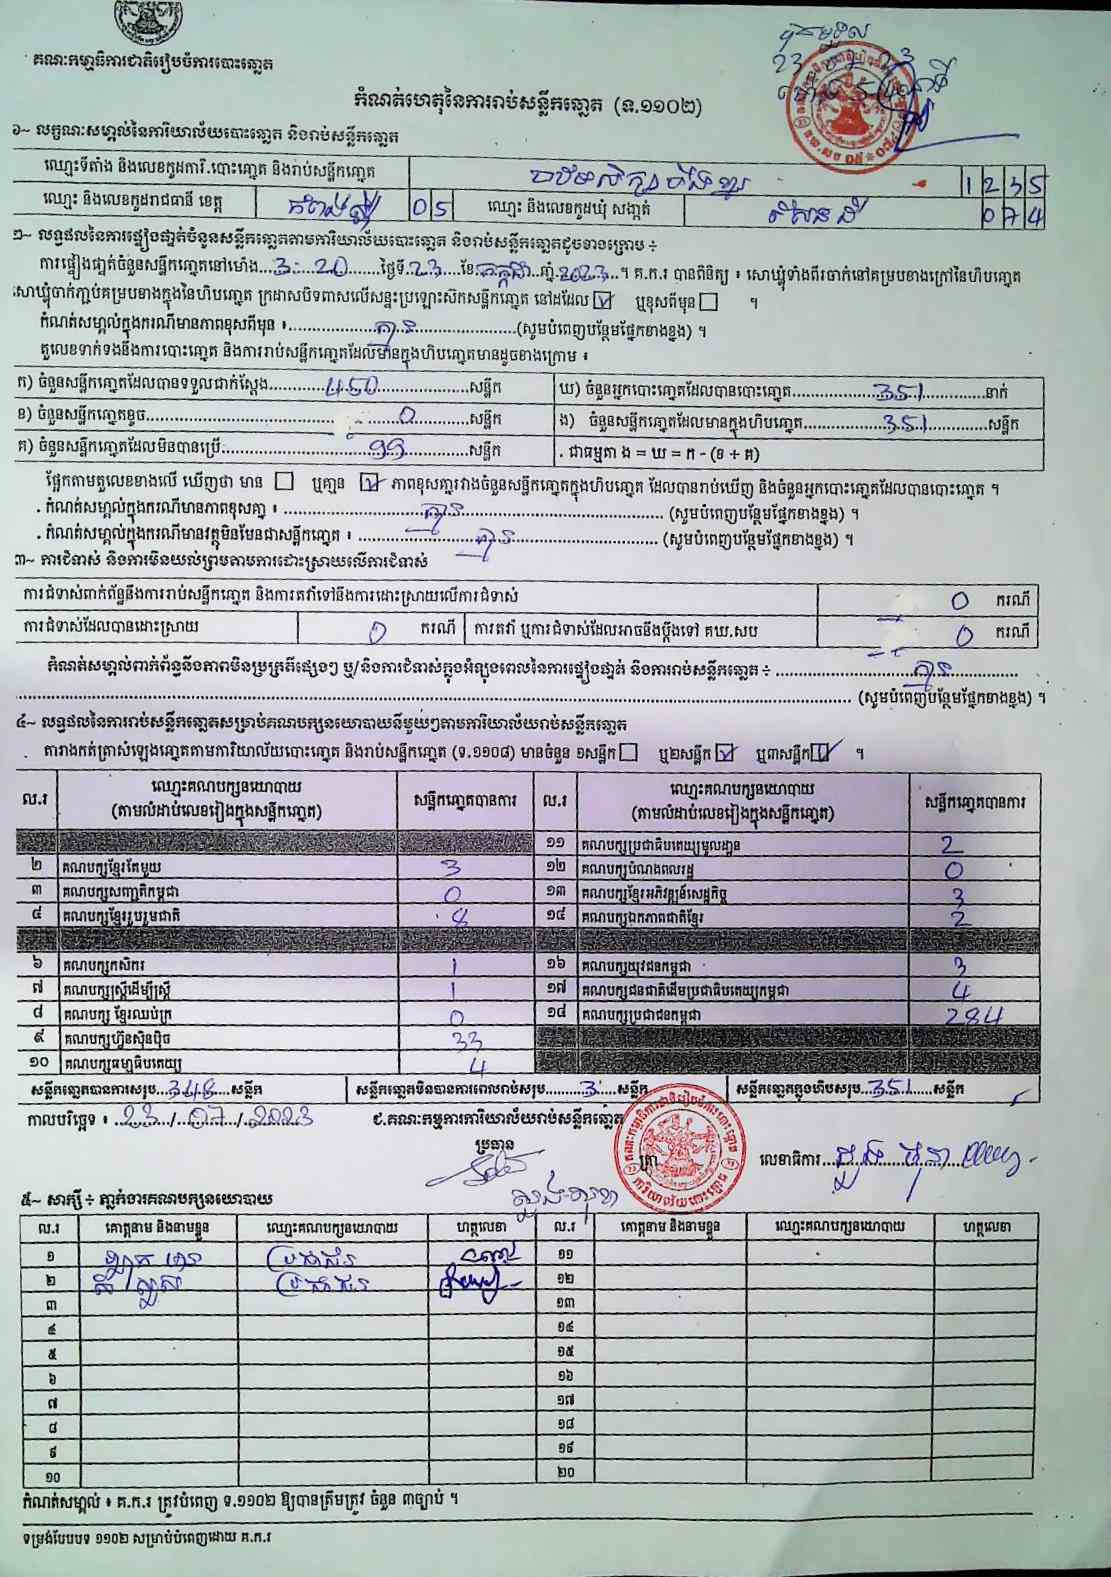 គណៈកម្មាធិការជាតិរៀបចំការបោះឆ្នោត
កំណត់ហេតុនៃការរាប់សន្លឹកឆ្នោត (ទ.១១០២)
១~ លក្ខណៈសម្គាល់នៃការិយាល័យបោះឆ្នោត និងរាប់សន្លឹកឆ្នោត
ឈ្មោះទីតាំង និងលេខកូដការិ.បោះឆ្នោត និងរាប់សន្លឹកឆ្នោត 1 2 3 5
ឈ្មោះ និងលេខកូដរាជធានី ខេត្ត កំពង់ស្ពឺ 0 5 ឈ្មោះ និងលេខកូដឃុំ សង្កាត់ 0 7 4
២~ លទ្ធផលនៃការផ្ទៀងផ្ទាត់ចំនួនសន្លឹកឆ្នោតតាមការិយាល័យបោះឆ្នោត និងរាប់សន្លឹកឆ្នោតដូចខាងក្រោម ៖
ការផ្ទៀងផ្ទាត់ចំនួនសន្លឹកឆ្នោតនៅម៉ោង...3:20......ថ្ងៃទី.23....ខែ.កក្កដា..ឆ្នាំ.2023..។ គ.ក.រ បានពិនិត្យ ៖ សោឃ្លុំទាំងពីរចាក់នៅគម្របខាងក្រៅនៃហិបឆ្នោត
សោឃ្លុំចាក់ភ្ជាប់គម្របខាងក្នុងនៃហិបឆ្នោត ក្រដាសបិទពាសលើសន្ទះប្រឡោះស៊កសន្លឹកឆ្នោត នៅដដែល ☑ ឬខុសពីមុន ☐ ។
កំណត់សម្គាល់ក្នុងករណីមានភាពខុសពីមុន ៖..............គ្មាន..............(សូមបំពេញបន្ថែមផ្នែកខាងខ្នង) ។
តួលេខទាក់ទងនឹងការបោះឆ្នោត និងការរាប់សន្លឹកឆ្នោតដែលមានក្នុងហិបឆ្នោតមានដូចខាងក្រោម ៖
ក) ចំនួនសន្លឹកឆ្នោតដែលបានទទួលជាក់ស្តែង..........450..........សន្លឹក
ឃ) ចំនួនអ្នកបោះឆ្នោតដែលបានបោះឆ្នោត..........351..........នាក់
ខ) ចំនួនសន្លឹកឆ្នោតខូច..........0..........សន្លឹក
ង) ចំនួនសន្លឹកឆ្នោតដែលមានក្នុងហិបឆ្នោត..........351..........សន្លឹក
គ) ចំនួនសន្លឹកឆ្នោតដែលមិនបានប្រើ..........99..........សន្លឹក
. ជាធម្មតា ង = ឃ = ក - (ខ + គ)
ផ្អែកតាមតួលេខខាងលើ ឃើញថា មាន ☐ ឬគ្មាន ☑ ភាពខុសគ្នារវាងចំនួនសន្លឹកឆ្នោតក្នុងហិបឆ្នោត ដែលបានរាប់ឃើញ និងចំនួនអ្នកបោះឆ្នោតដែលបានបោះឆ្នោត ។
. កំណត់សម្គាល់ក្នុងករណីមានភាពខុសគ្នា ៖ ..............គ្មាន.............. (សូមបំពេញបន្ថែមផ្នែកខាងខ្នង) ។
. កំណត់សម្គាល់ក្នុងករណីមានវត្ថុមិនមែនជាសន្លឹកឆ្នោត ៖ ..............គ្មាន.............. (សូមបំពេញបន្ថែមផ្នែកខាងខ្នង) ។
៣~ ការជំទាស់ និងការមិនយល់ព្រមតាមការដោះស្រាយលើការជំទាស់
ការជំទាស់ពាក់ព័ន្ធនឹងការរាប់សន្លឹកឆ្នោត និងការតវ៉ាទៅនឹងការដោះស្រាយលើការជំទាស់ 0 ករណី
ការជំទាស់ដែលបានដោះស្រាយ 0 ករណី ការតវ៉ា ឬការជំទាស់ដែលអាចនឹងប្តឹងទៅ គឃ.សប 0 ករណី
កំណត់សម្គាល់ពាក់ព័ន្ធនឹងភាពមិនប្រក្រតីផ្សេងៗ ឬ/និងការជំទាស់ក្នុងអំឡុងពេលនៃការផ្ទៀងផ្ទាត់ និងការរាប់សន្លឹកឆ្នោត ៖ ..............គ្មាន..............
.............................. (សូមបំពេញបន្ថែមផ្នែកខាងខ្នង) ។
៤~ លទ្ធផលនៃការរាប់សន្លឹកឆ្នោតសម្រាប់គណបក្សនយោបាយនីមួយៗតាមការិយាល័យរាប់សន្លឹកឆ្នោត
តារាងកត់ត្រាសំឡេងឆ្នោតតាមការិយាល័យបោះឆ្នោត និងរាប់សន្លឹកឆ្នោត (ទ.១១០៨) មានចំនួន ១សន្លឹក ☐ ឬ២សន្លឹក ☑ ឬ៣សន្លឹក ☑ ។
ល.រ ឈ្មោះគណបក្សនយោបាយ (តាមលំដាប់លេខរៀងក្នុងសន្លឹកឆ្នោត) សន្លឹកឆ្នោតបានការ ល.រ ឈ្មោះគណបក្សនយោបាយ (តាមលំដាប់លេខរៀងក្នុងសន្លឹកឆ្នោត) សន្លឹកឆ្នោតបានការ
១១ គណបក្សប្រជាធិបតេយ្យមូលដ្ឋាន 2
២ គណបក្សខ្មែរតែមួយ 3 ១២ គណបក្សបំណងពលរដ្ឋ 0
៣ គណបក្សសញ្ជាតិកម្ពុជា 0 ១៣ គណបក្សខ្មែរអភិវឌ្ឍន៍សេដ្ឋកិច្ច 3
៤ គណបក្សខ្មែររួបរួមជាតិ 8 ១៤ គណបក្សឯកភាពជាតិខ្មែរ 2
៦ គណបក្សកសិករ 1 ១៦ គណបក្សយុវជនកម្ពុជា 3
៧ គណបក្សស្ត្រីដើម្បីស្ត្រី 1 ១៧ គណបក្សជនជាតិដើមប្រជាធិបតេយ្យកម្ពុជា 4
៨ គណបក្ស ខ្មែរឈប់ក្រ 0 ១៨ គណបក្សប្រជាជនកម្ពុជា 284
៩ គណបក្សហ៊្វុនស៊ិនប៉ិច 33
១០ គណបក្សធម្មាធិបតេយ្យ 4
សន្លឹកឆ្នោតបានការសរុប..348....សន្លឹក សន្លឹកឆ្នោតមិនបានការពេលរាប់សរុប......3..សន្លឹក សន្លឹកឆ្នោតក្នុងហិបសរុប..351....សន្លឹក
កាលបរិច្ឆេទ ៖ ..23.../...07.../..2023 ជ.គណៈកម្មការការិយាល័យរាប់សន្លឹកឆ្នោត
ប្រធាន ត្រា លេខាធិការ
៥~ សាក្សី ៖ ភ្នាក់ងារគណបក្សនយោបាយ
ល.រ គោត្តនាម និងនាមខ្លួន ឈ្មោះគណបក្សនយោបាយ ហត្ថលេខា ល.រ គោត្តនាម និងនាមខ្លួន ឈ្មោះគណបក្សនយោបាយ ហត្ថលេខា
១ ប្រជាជន ១១
២ ប្រជាជន ១២
៣ ១៣
៤ ១៤
៥ ១៥
៦ ១៦
៧ ១៧
៨ ១៨
៩ ១៩
១០ ២០
កំណត់សម្គាល់ ៖ គ.ក.រ ត្រូវបំពេញ ទ.១១០២ ឱ្យបានត្រឹមត្រូវ ចំនួន ៣ច្បាប់ ។
ទម្រង់បែបបទ ១១០២ សម្រាប់បំពេញដោយ គ.ក.រ